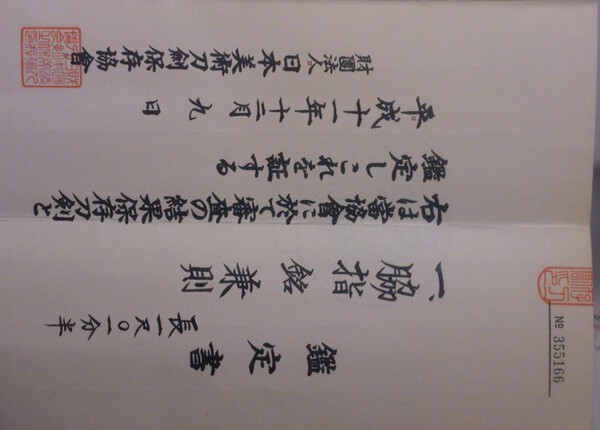 № 355166
鑑定書
長一尺〇一分半
一、脇指 銘 兼則
右は當協會に於て審査の結果保存刀剣と
鑑定しこれを証する
平成十一年十二月九日
財團法人日本美術刀剣保存協會